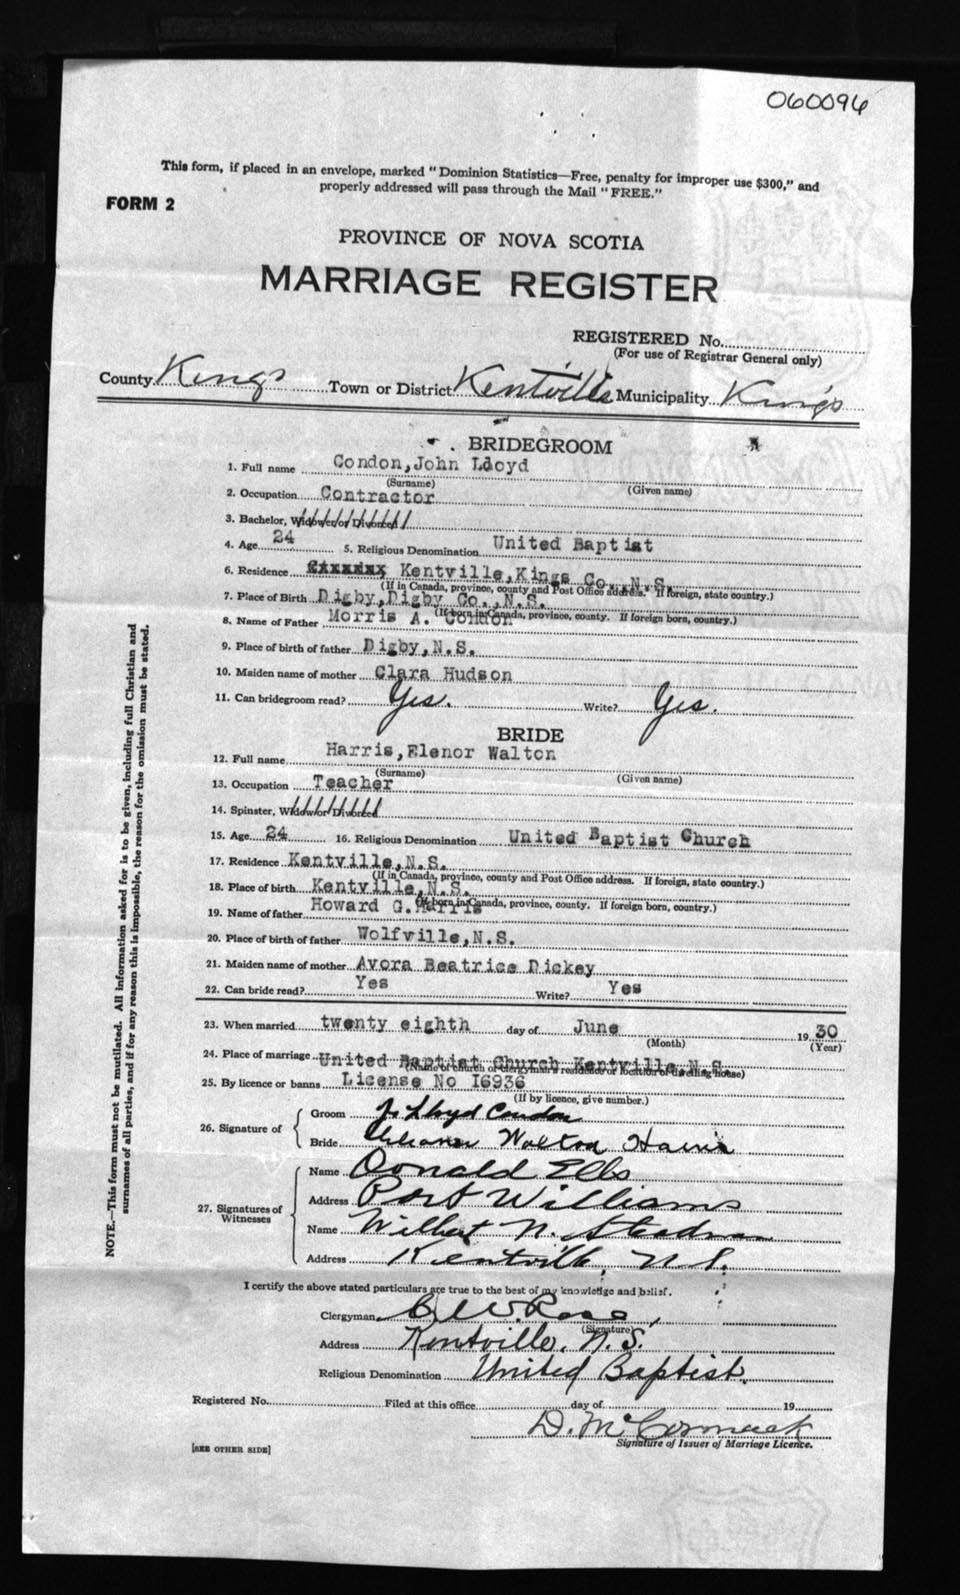 060096
This form, if placed in an envelope, marked "Dominion Statistics—Free, penalty for improper use $300," and
properly addressed will pass through the Mail "FREE."
FORM 2
PROVINCE OF NOVA SCOTIA
MARRIAGE REGISTER
REGISTERED No.
(For use of Registrar General only)
County Kings Town or District Kentville Municipality Kings
BRIDEGROOM
1. Full name Condon, John Lloyd
(Surname) (Given name)
2. Occupation Contractor
3. Bachelor, Widower or Divorced
4. Age 24 5. Religious Denomination United Baptist
6. Residence Kentville, Kings Co., N.S.
(If in Canada, province, county and Post Office address. If foreign, state country.)
7. Place of Birth Digby, Digby Co., N.S.
(If born in Canada, province, county. If foreign born, country.)
8. Name of Father Morris A. Condon
9. Place of birth of father Digby, N.S.
10. Maiden name of mother Clara Hudson
11. Can bridegroom read? Yes. Write? Yes.
BRIDE
12. Full name Harris, Elenor Walton
(Surname) (Given name)
13. Occupation Teacher
14. Spinster, Widow or Divorced
15. Age 24 16. Religious Denomination United Baptist Church
17. Residence Kentville, N.S.
(If in Canada, province, county and Post Office address. If foreign, state country.)
18. Place of birth Kentville, N.S.
(If born in Canada, province, county. If foreign born, country.)
19. Name of father Howard G. Harris
20. Place of birth of father Wolfville, N.S.
21. Maiden name of mother Avora Beatrice Dickey
22. Can bride read? Yes Write? Yes
23. When married twenty eighth day of June 1930
(Month) (Year)
24. Place of marriage United Baptist Church Kentville, N.S.
(Name of church or clergyman's residence or location of dwelling house)
25. By licence or banns License No 16936
(If by licence, give number.)
26. Signature of
Groom J. Lloyd Condon
Bride Eleanor Walton Harris
27. Signatures of Witnesses
Name Donald Ells
Address Port Williams
Name Wilbert N. Steadman
Address Kentville, N.S.
I certify the above stated particulars are true to the best of my knowledge and belief.
Clergyman C. W. Rose
(Signature)
Address Kentville, N.S.
Religious Denomination United Baptist.
Registered No. Filed at this office day of 19
D. McCormack
Signature of Issuer of Marriage Licence.
[SEE OTHER SIDE]
NOTE.—This form must not be mutilated. All information asked for is to be given, including full Christian and
surnames of all parties, and if for any reason this is impossible, the reason for the omission must be stated.